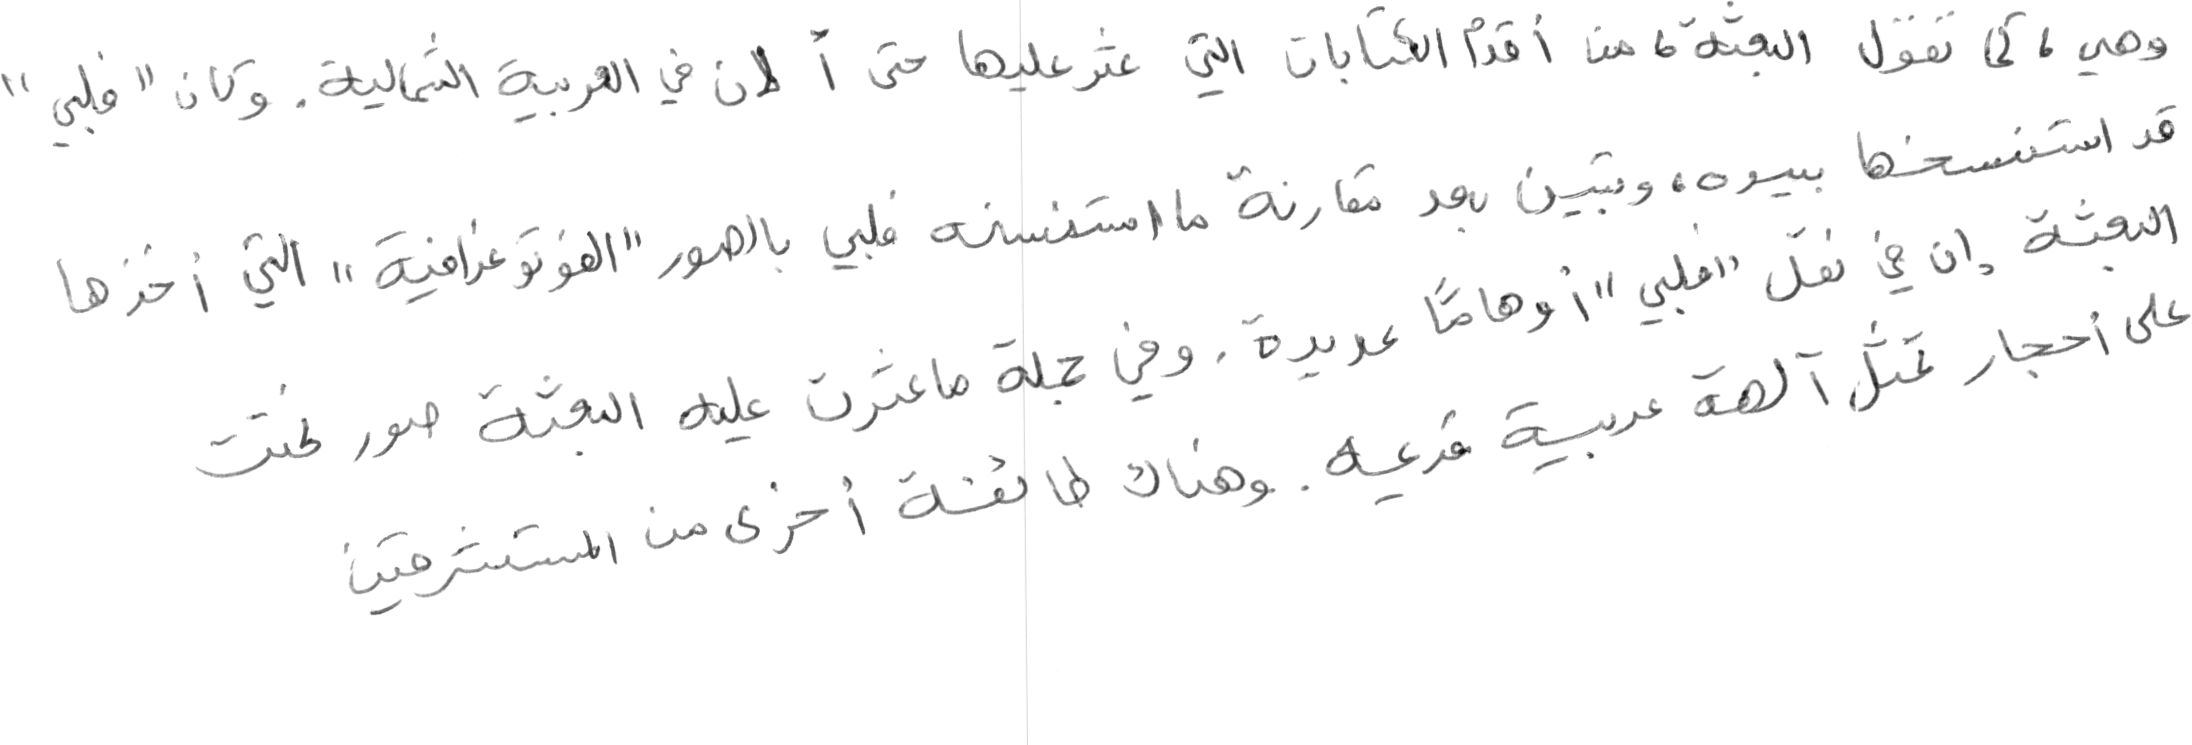 وهي، كما تقول البعثة، من أقدم الكتابات التي عثر عليها حتى الآن في العربية الشمالية. وكان "فلبي"
قد استنسخها بيده، وتبين بعد مقارنة ما استنسخه فلبي بالصور "الفوتوغرافية" التي أخذها
البعثة ان في نقل "فلبي" أوهامًا عديدة. وفي جملة ما عثرت عليه البعثة صور نحتت
على أحجار تمثل آلهة عربية قديمه. وهناك طائفة أخرى من المستشرقين